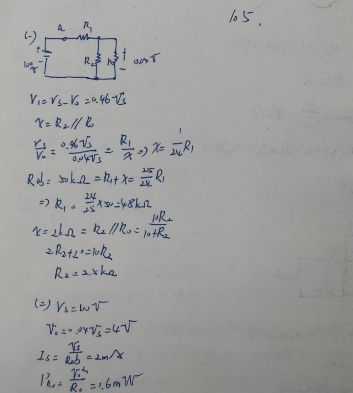 105.
(一)
a
R₁
+
100V
-
R₂
R₀
+
0.04Vs
-
V₁ = Vs - V₀ = 0.96Vs
X = R₂ // R₀
V₁/V₀ = 0.96Vs/0.04Vs = R₁/X ⇒ X = 1/24 R₁
Rab = 50kΩ = R₁ + X = 25/24 R₁
⇒ R₁ = 24/25 × 50 = 48kΩ
X = 2kΩ = R₂ // R₀ = 10R₂/10+R₂
2R₂ + 20 = 10R₂
R₂ = 2.5kΩ
(二) Vs = 100V
V₀ = 0.04Vs = 4V
Is = Vs/Rab = 2mA
PR₀ = V₀²/R₀ = 1.6mW